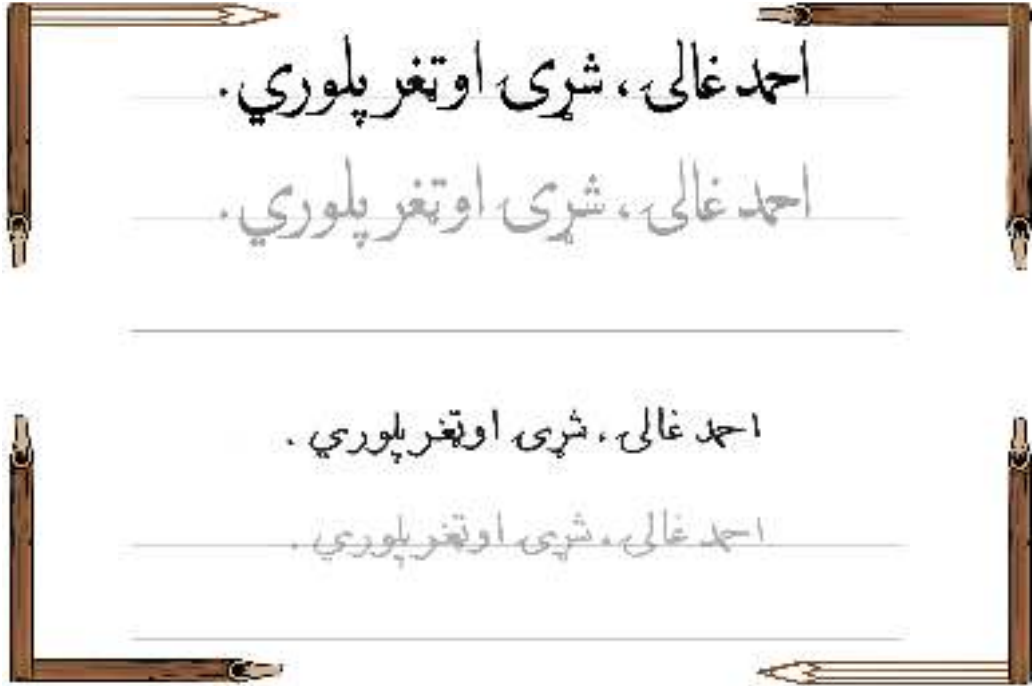 احمد غالۍ ، شړۍ او ټغر پلوري .
احمد غالۍ ، شړۍ او ټغر پلوري .
احمد غالۍ ، شړۍ او ټغر پلوري .
احمد غالۍ ، شړۍ او ټغر پلوري .